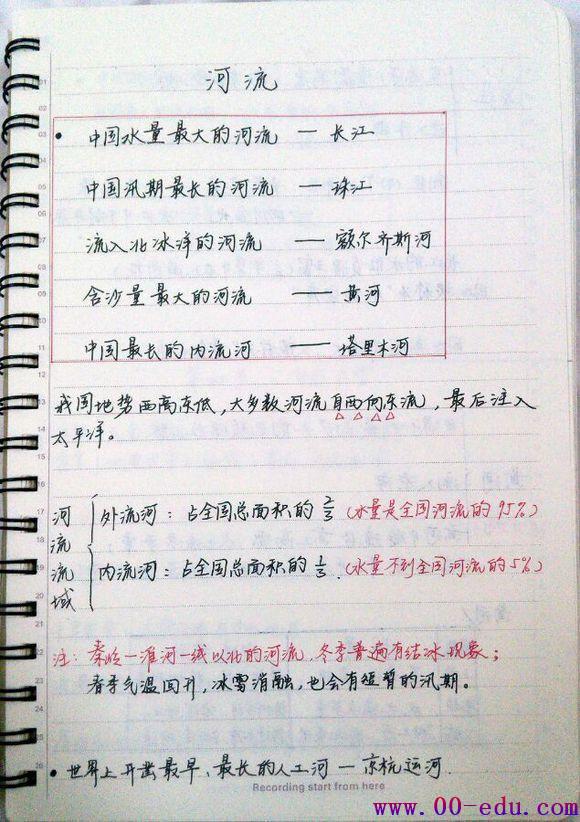 河流
• 中国水量最大的河流 — 长江
中国汛期最长的河流 — 珠江
流入北冰洋的河流 —— 额尔齐斯河
含沙量最大的河流 —— 黄河
中国最长的内流河 —— 塔里木河
我国地势西高东低，大多数河流自西向东流，最后注入
太平洋。
河流流域
外流河：占全国总面积的 2/3 (水量是全国河流的95%)
内流河：占全国总面积的 1/3 (水量不到全国河流的5%)
注：秦岭一淮河一线以北的河流，冬季普遍有结冰现象；
春季气温回升，冰雪消融，也会有短暂的汛期。
• 世界上开凿最早、最长的人工河 — 京杭运河.
Recording start from here
www.00-edu.com